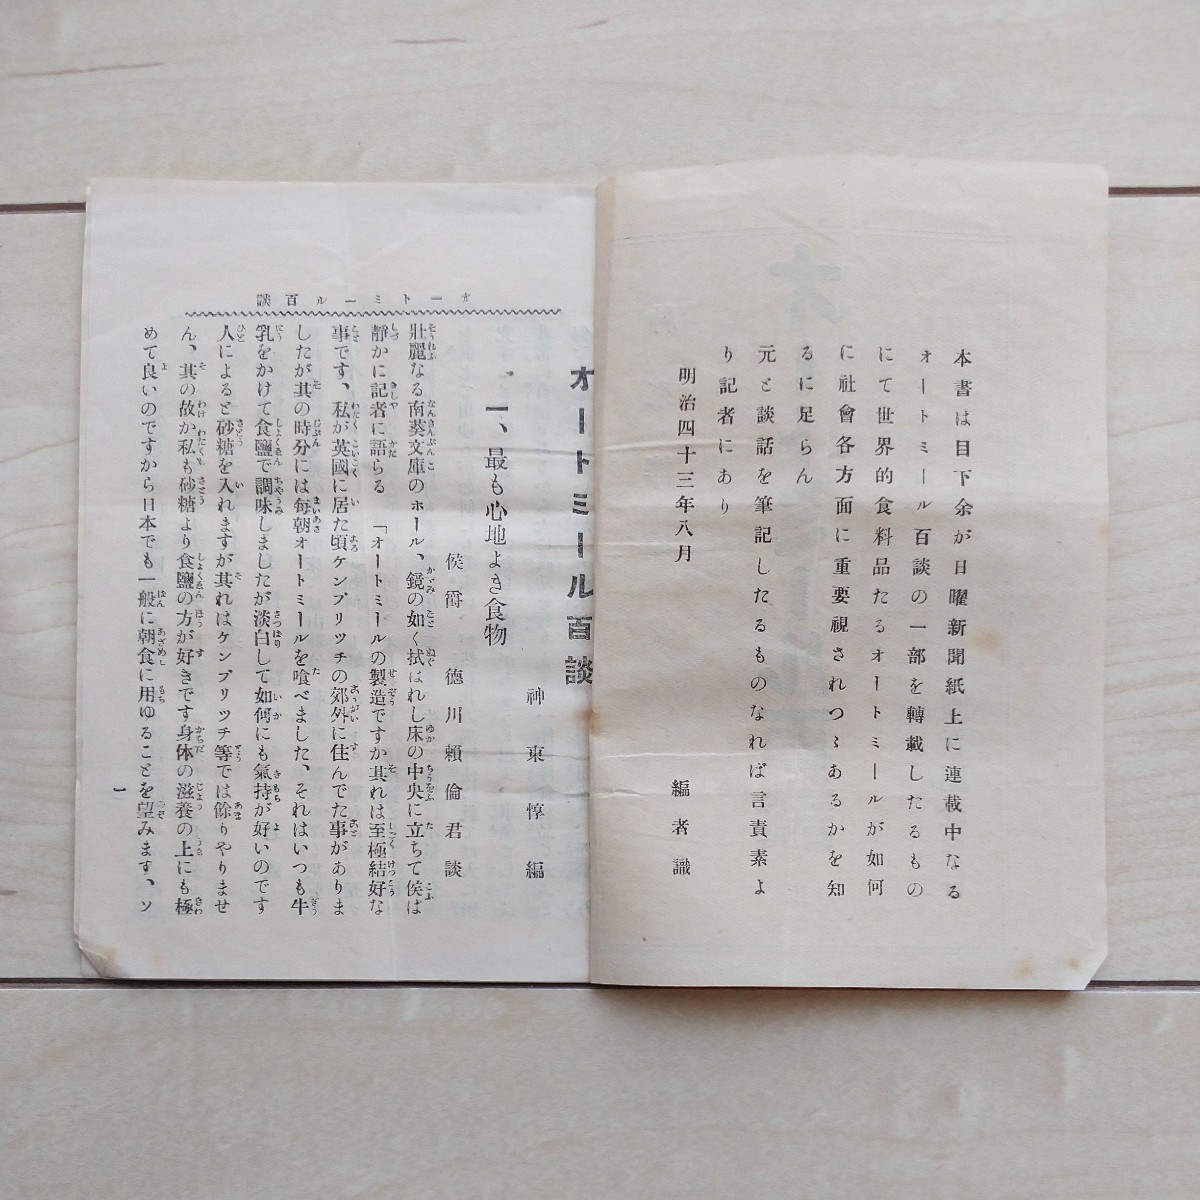 本書は目下余が日曜新聞紙上に連載中なる
オートミール百談の一部を轉載したるもの
にて世界的食料品たるオートミールが如何
に社會各方面に重要視されつゝあるかを知
るに足らん
元と談話を筆記したるものなれば言責素よ
り記者にあり
明治四十三年八月
編者識
オートミール百談
オートミール百談
神東惇編
一、最も心地よき食物
侯爵 徳川頼倫君談
壯麗なる南葵文庫のホール、鏡の如く拭はれし床の中央に立ちて侯は
靜かに記者に語らる 「オートミールの製造ですか其れは至極結好な
事です、私が英國に居た頃ケンブリツチの郊外に住んでた事がありま
したが其の時分には毎朝オートミールを喰べました、それはいつも牛
乳をかけて食鹽で調味しましたが淡白して如何にも氣持が好いのです
人によると砂糖を入れますが其れはケンブリツチ等では餘りやりませ
ん、其の故か私も砂糖より食鹽の方が好きです身体の滋養の上にも極
めて良いのですから日本でも一般に朝食に用ゆることを望みます、ソ
一